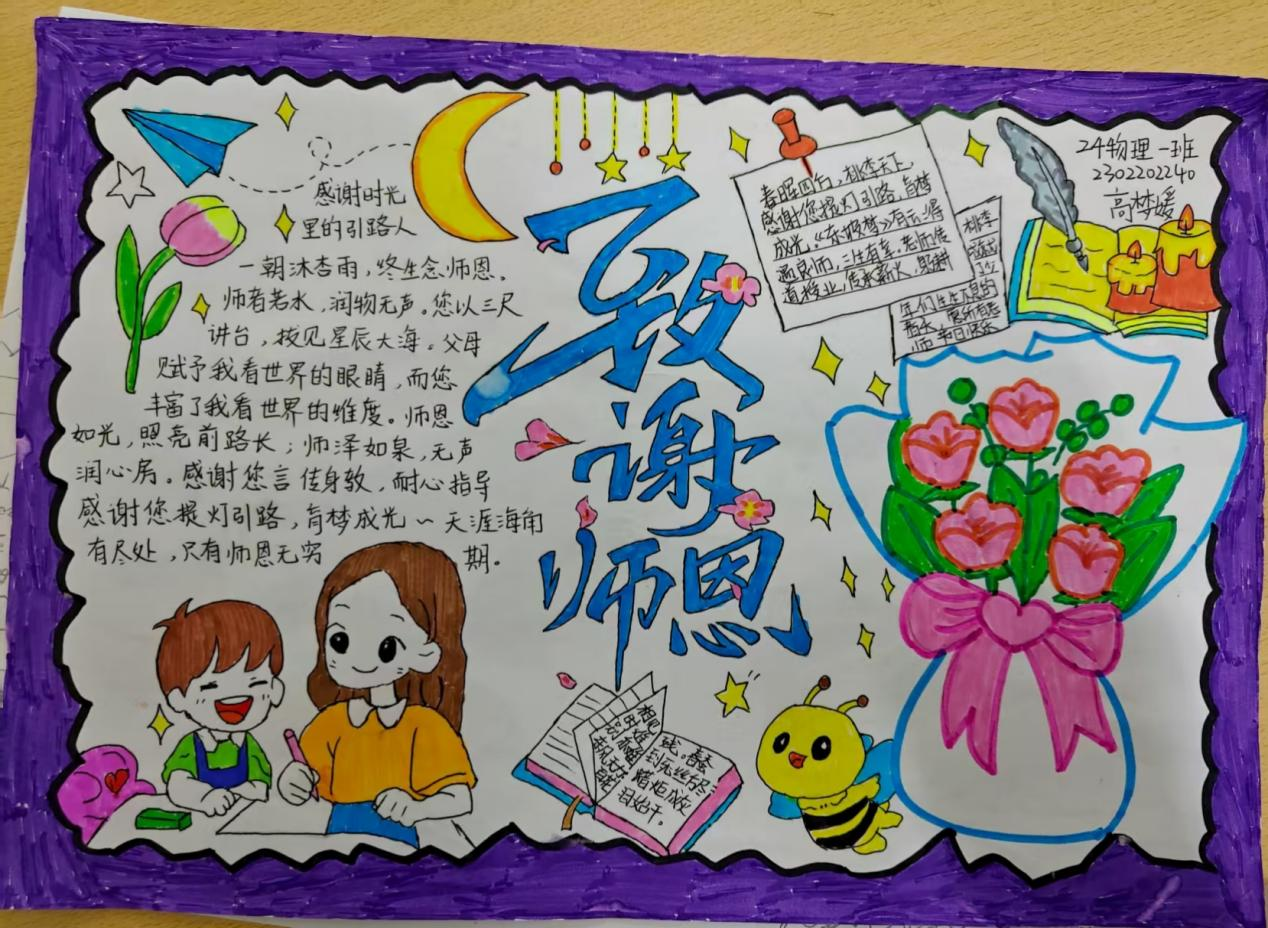 感谢时光
里的引路人
一朝沐杏雨，终生念师恩。
师者若水，润物无声。您以三尺
讲台，拔见星辰大海。父母
赋予我看世界的眼睛，而您
丰富了我看世界的维度。师恩
如光，照亮前路长；师泽如泉，无声
润心房。感谢您言传身教，耐心指导
感谢您提灯引路，育梦成光～天涯海角
有尽处，只有师恩无穷期。
致
谢
师恩
春晖四方，桃李天下，
感谢您提灯引路，育梦
成光。
温良师，三生有幸，老师传
道授业，传承薪火
桃李
24物理一班
2302202240
高梦媛
相见
时难
别亦难
东风无力
百花残。春蚕
到死丝方尽
蜡炬成灰
泪始干。